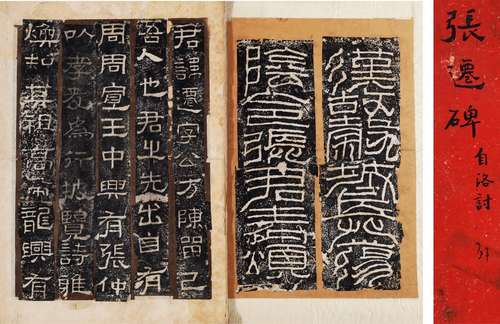 張遷碑
自洛討
漢故穀城長蕩
陰令張君表頌
君諱遷字公方陳留己
吾人也君之先出自有
周周宣王中興有張仲
以孝友為行披覽詩雅
煥知其祖高帝龍興有